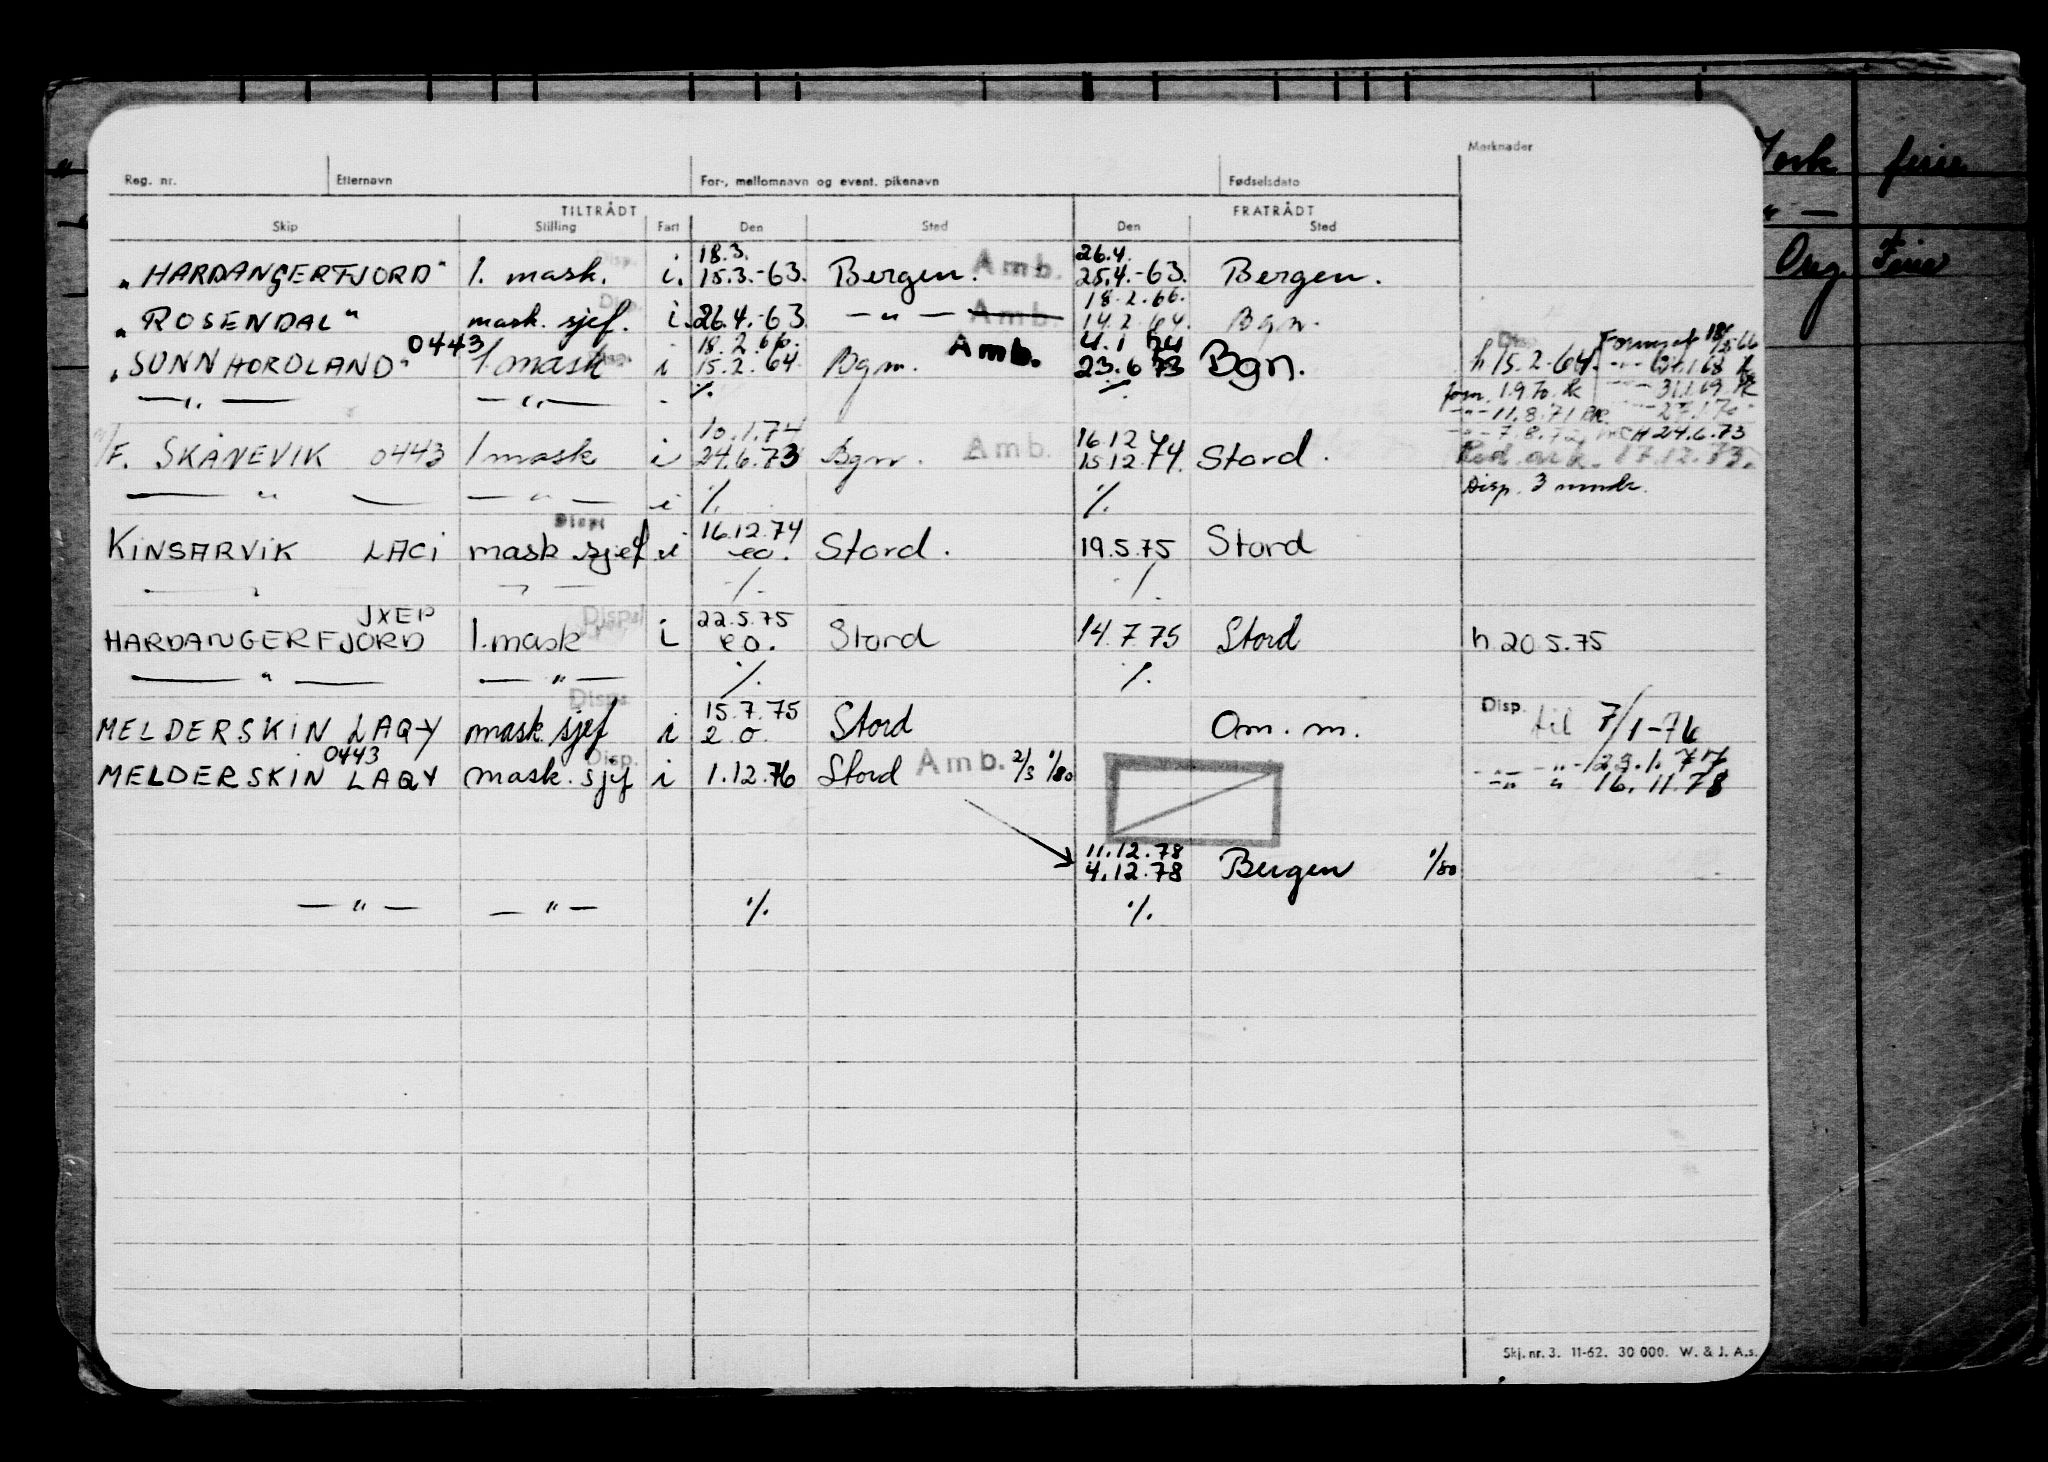 Merknader
Reg. nr. Etternavn For-, mellomnavn og event. pikenavn Fødselsdato
TILTRÅDT FRATRÅDT
Skip Stilling Fart Den Sted Den Sted
Disp. 18.3. 26.4.
"HARDANGERFJORD" 1. mask. i. 15.3.-63. Bergen. Amb. 25.4.-63. Bergen.
Disp. 18.2.66.
"ROSENDAL" mask. sjef. i. 26.4.-63 — " — Amb. 14.2.64. Bgn.
0443 Disp. 18.2.66. Amb. 4.1.74 Disp. Fornyet 18/2.66
"SUNNHORDLAND" 1. mask i 15.2.64. Bgn. 23.6.73 Bgn. h 15.2-64.
— " — — " — - ./. ./. forn. 1.9.70. 31.1.69
— " — 11.8.71 27.1.70
10.1.74 16.12.74 — " — 7.8.72 24.6.73
M/F. SKÅNEVIK 0443 1 mask i 24.6.73 Bgn. Amb. 15.12.74. Stord. 17.12.73.
— " — — " — i ./. ./. Disp. 3 mndr.
Disp. 16.12.74
KINSARVIK LACI mask sjef i eo. Stord. 19.5.75 Stord
— " — — " — ./. ./.
JXEP Disp. 22.5.75
HARDANGERFJORD 1. mask i eo. Stord 14.7.75 Stord h. 20.5.75
— " — — " — ./. ./.
Disp. 15.7.75 Disp.
MELDERSKIN LAQY mask sjef i e.o. Stord Om. m. til 7/1-76
0443 Disp. — " — 29.1.77
MELDERSKIN LAQY mask. sjef i 1.12.76 Stord Amb. 2/3 1/80 — " — " 16.11.78
11.12.78
4.12.78 Bergen 1/80
— " — — " — ./. ./.
Skj. nr. 3. 11-62. 30 000. W. & J. A.s.